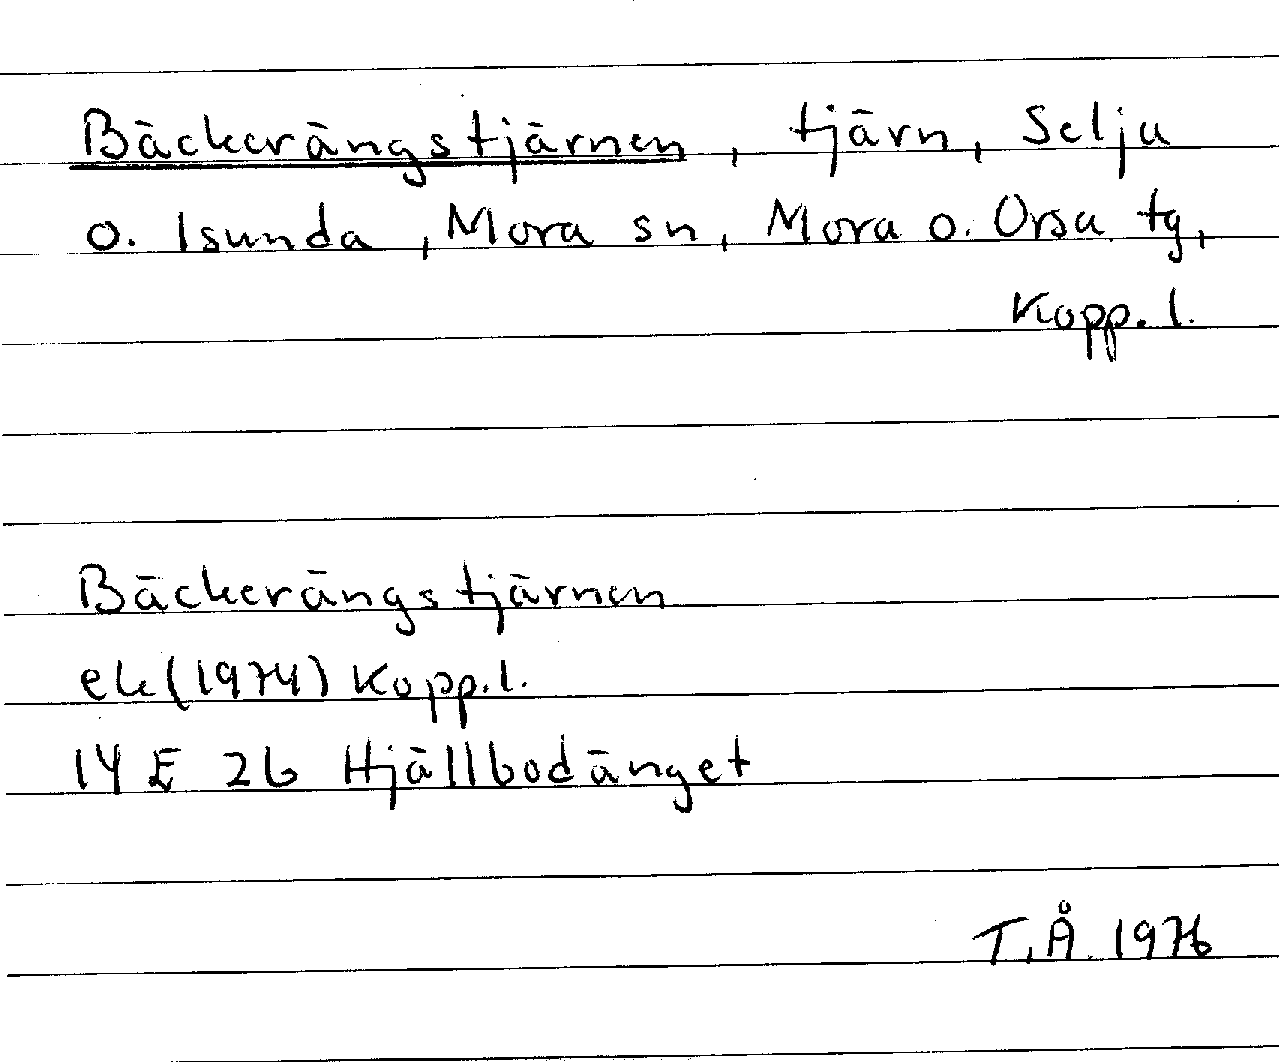 Bäckerängstjärnen, tjärn, Selja
o. Isunda, Mora sn, Mora o. Orsa tg,
Kopp. l.
Bäckerängstjärnen
ek(1974) Kopp.l.
14 E 2b Hjällbodänget
T.Å. 1976